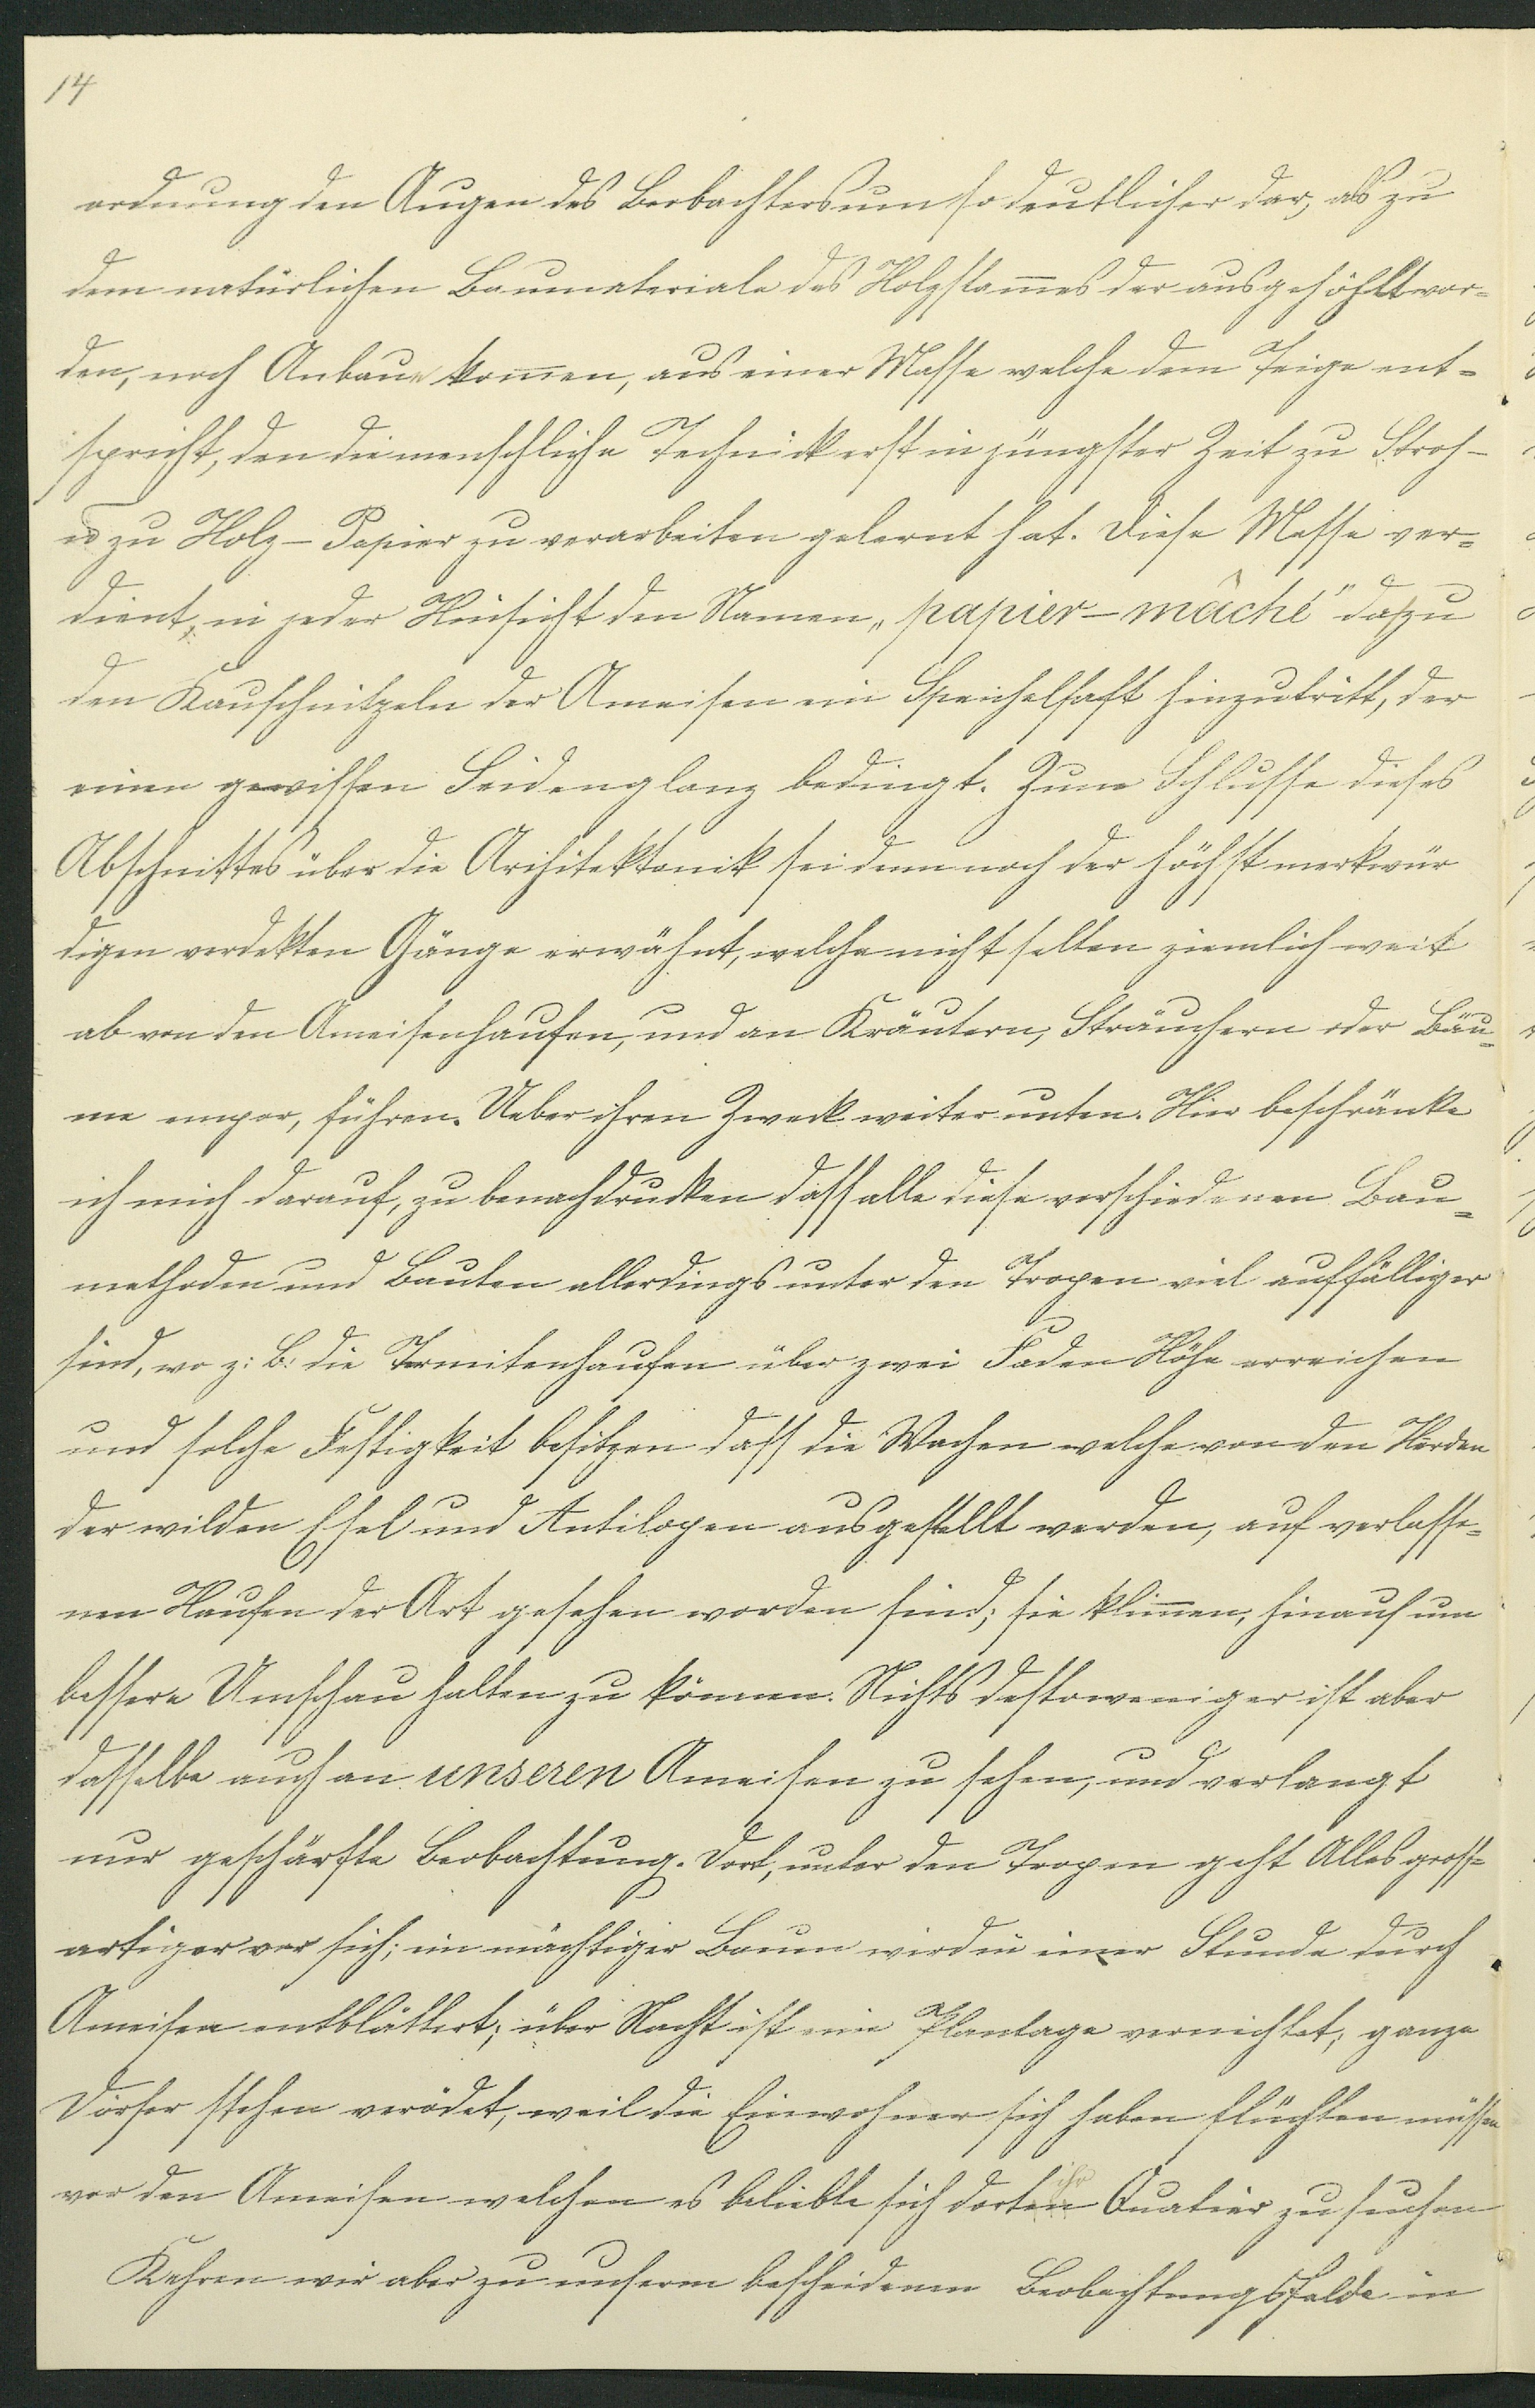 14
ordnung den Augen des Beobachters um so deutlicher dar, als zu
dem natürlichen Baumateriale des Holzstam̅es der ausgehöhlt wor=
den, noch Anbaue kom̅en, aus einer Masse welche dem Teige ent=
spricht, den die menschliche Technick erst in jüngster Zeit zu Stroh-
u zu Holz-Papier zu verarbeiten gelernt hat. Diese Masse ver=
dient, in jeder Hinsicht den Namen „papier-mâché" da zu
den Kauschnitzeln der Ameisen ein Speichelsaft hinzutritt, der
einen gewissen Seidenglanz bedingt. Zum Schlusse dieses
Abschnittes über die Architektonik sei denn noch der höchst merkwür
digen verdekten Gänge erwähnt, welche nicht selten ziemlich weit
ab von den Ameisenhaufen, und an Kräutern, Sträuchern oder Bäu=
me empor, führen. Ueber ihren Zweck weiter unten. Hier beschränke
ich mich darauf, zu benachdrucken dass alle diese verschiedenen Bau=
methoden und Bauten allerdings unter den Tropen viel auffälliger
sind, wo z: B: die Termitenhaufen über zwei Faden Höhe erreichen
und solche Festigkeit besitzen dass die Wachen welche von den Herden
der wilden Esel und Antilopen ausgestellt werden, auf verlasse=
nen Haufen der Art gesehen worden sind; sie klim̅en, hinauf um
bessere Umschau halten zu können. Nichts destoweniger ist aber
dasselbe auch an unseren Ameisen zu sehen, und verlangt
nur geschärfte Beobachtung. Dort, unter den Tropen geht Alles gross=
artiger vor sich; ein mächtiger Baum wird in einer Stunde durch
Ameisen entblättert; über Nacht ist eine Plantage vernichtet; ganze
Dörfer stehen verödet, weil die Einwohner sich haben flüchten müssen
vor den Ameisen welchen es beliebte sich dorten ihr Quatier zu suchen
Kehren wir aber zu unserem bescheidenen Beobachtungsfelde in